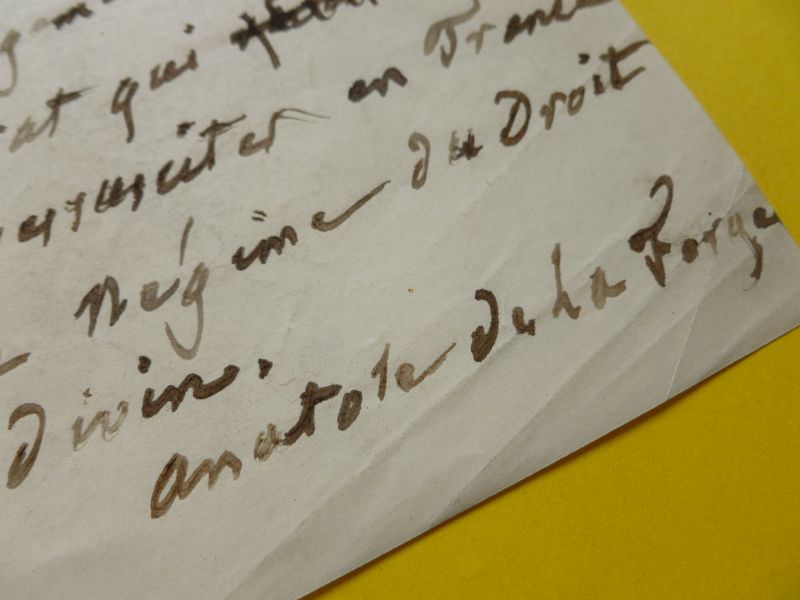 qui
ressusciter en France
Régime du Droit
divin.
anatole de La Forge